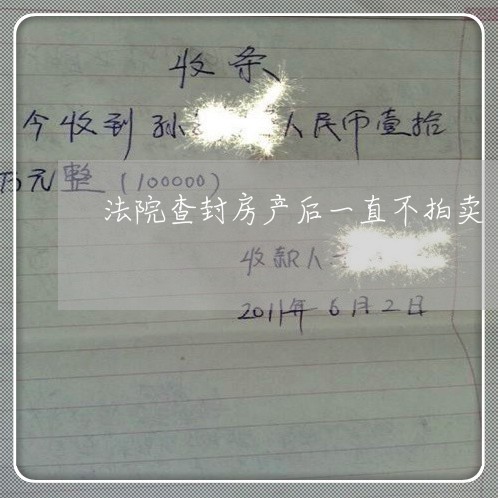 收条
今收到孙人民币壹拾
万元整(100000)
法院查封房产后一直不拍卖
收款人
2011年6月2日